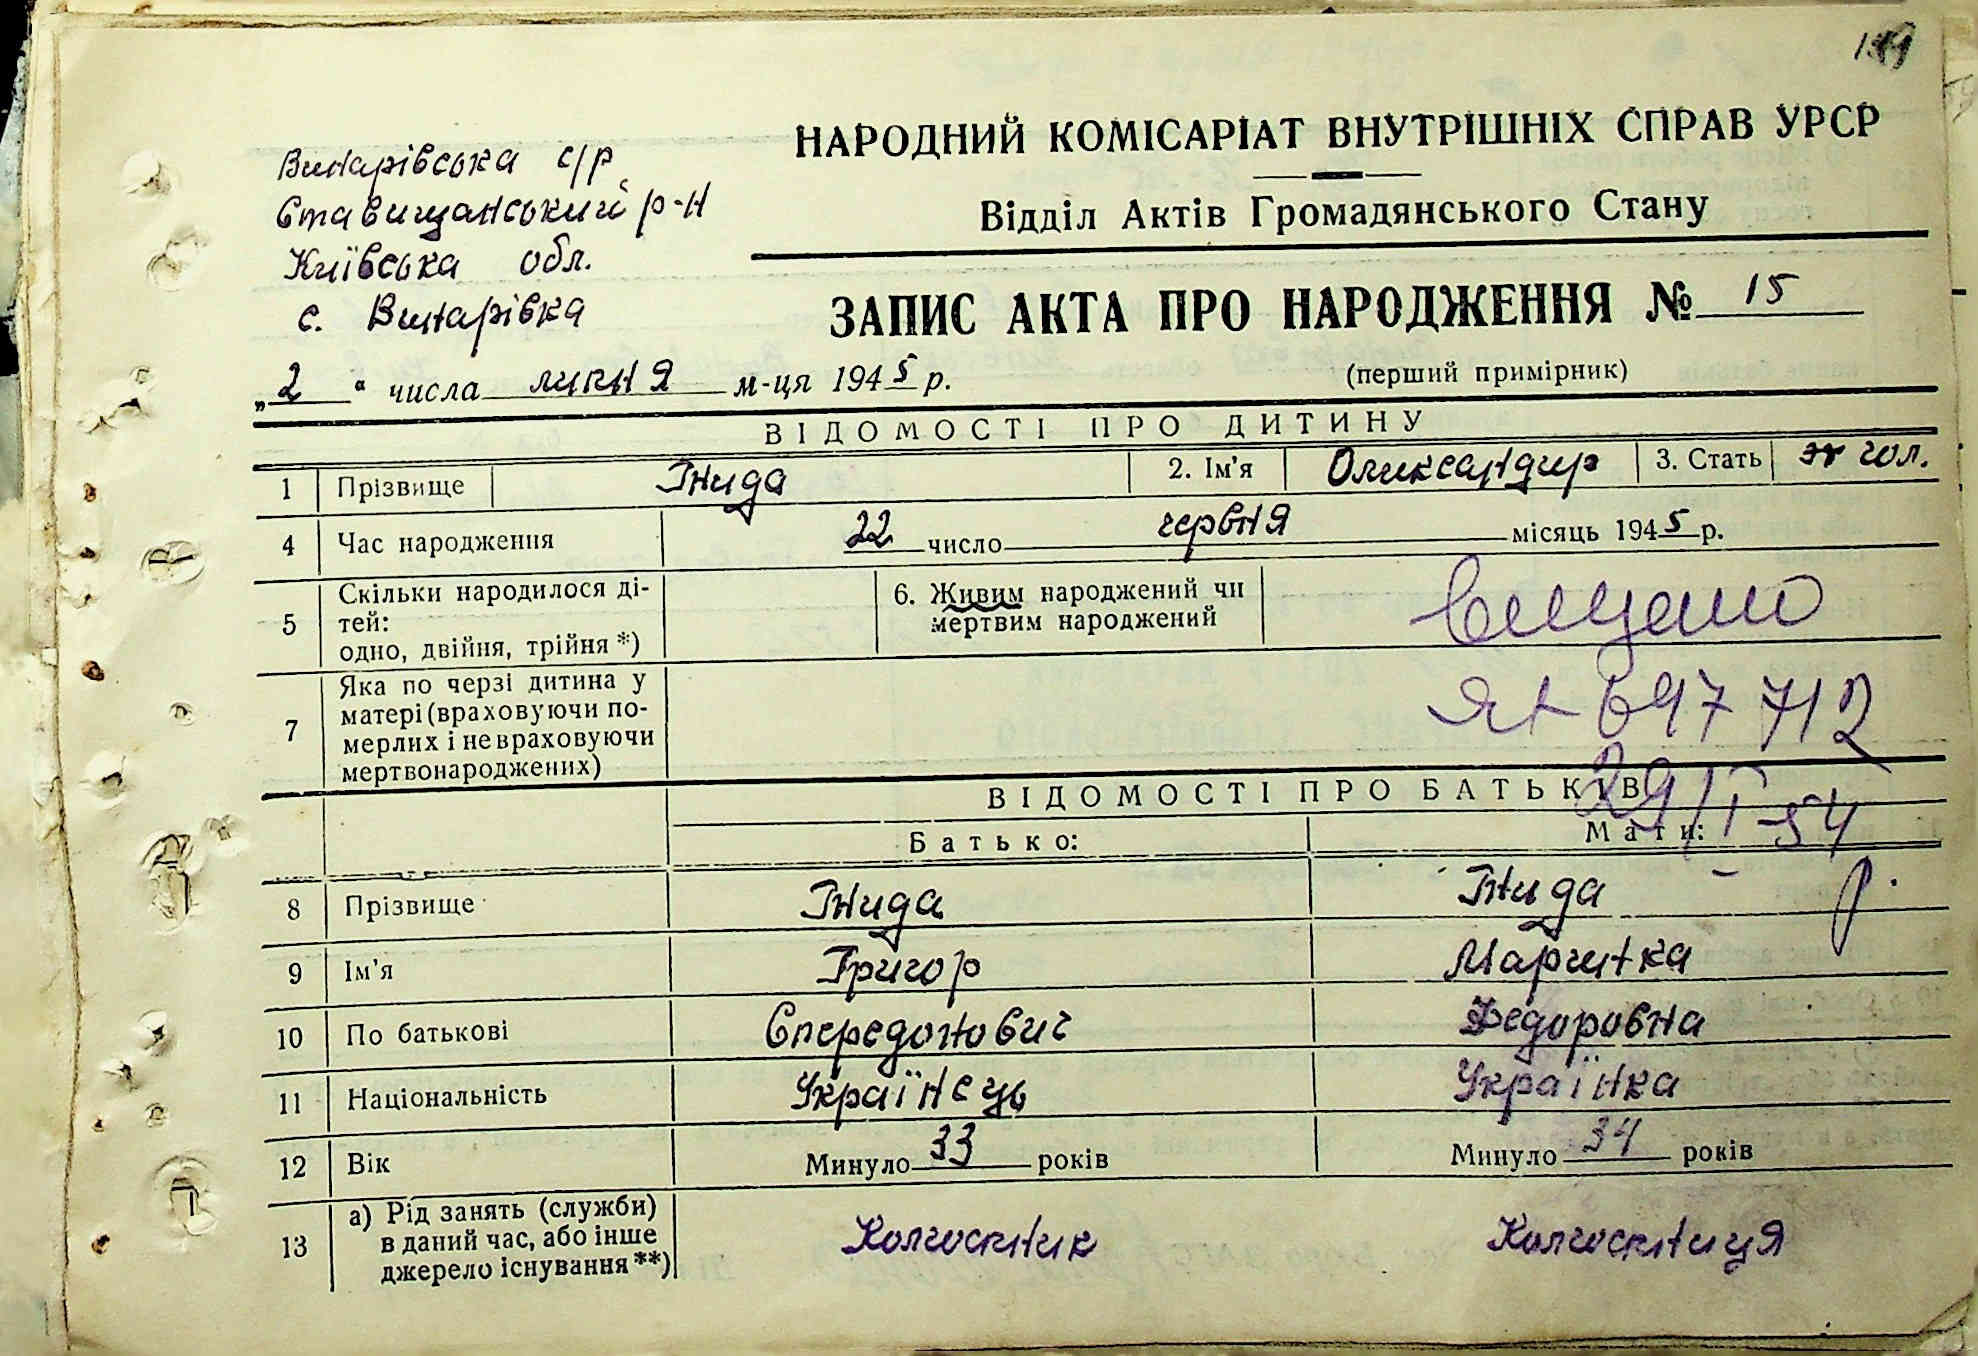 Винарівська с/р
Ставищанський р-н
Київська обл.
с. Винарівка
НАРОДНИЙ КОМІСАРІАТ ВНУТРІШНІХ СПРАВ УРСР
Відділ Актів Громадянського Стану
ЗАПИС АКТА ПРО НАРОДЖЕННЯ № 15
(перший примірник)
„2“ числа липня м-ця 1945 р.
ВІДОМОСТІ ПРО ДИТИНУ
1 Прізвище Гнида 2. Ім'я Олександир 3. Стать чол.
4 Час народження 22 число червня місяць 1945 р.
5 Скільки народилося ді-
тей:
одно, двійня, трійня *)
6. Живим народжений чи
мертвим народжений
7 Яка по черзі дитина у
матері (враховуючи по-
мерлих і невраховуючи
мертвонароджених)
697712
29/I-54
р.
ВІДОМОСТІ ПРО БАТЬКІВ
Батько: Мати:
8 Прізвище Гнида Гнида
9 Ім'я Григор Марчинка
10 По батькові Спередонович Федоровна
11 Національність Українець Українка
12 Вік Минуло 33 років Минуло 34 років
13 а) Рід занять (служби)
в даний час, або інше
джерело існування **)
Колгоспник Колгоспниця